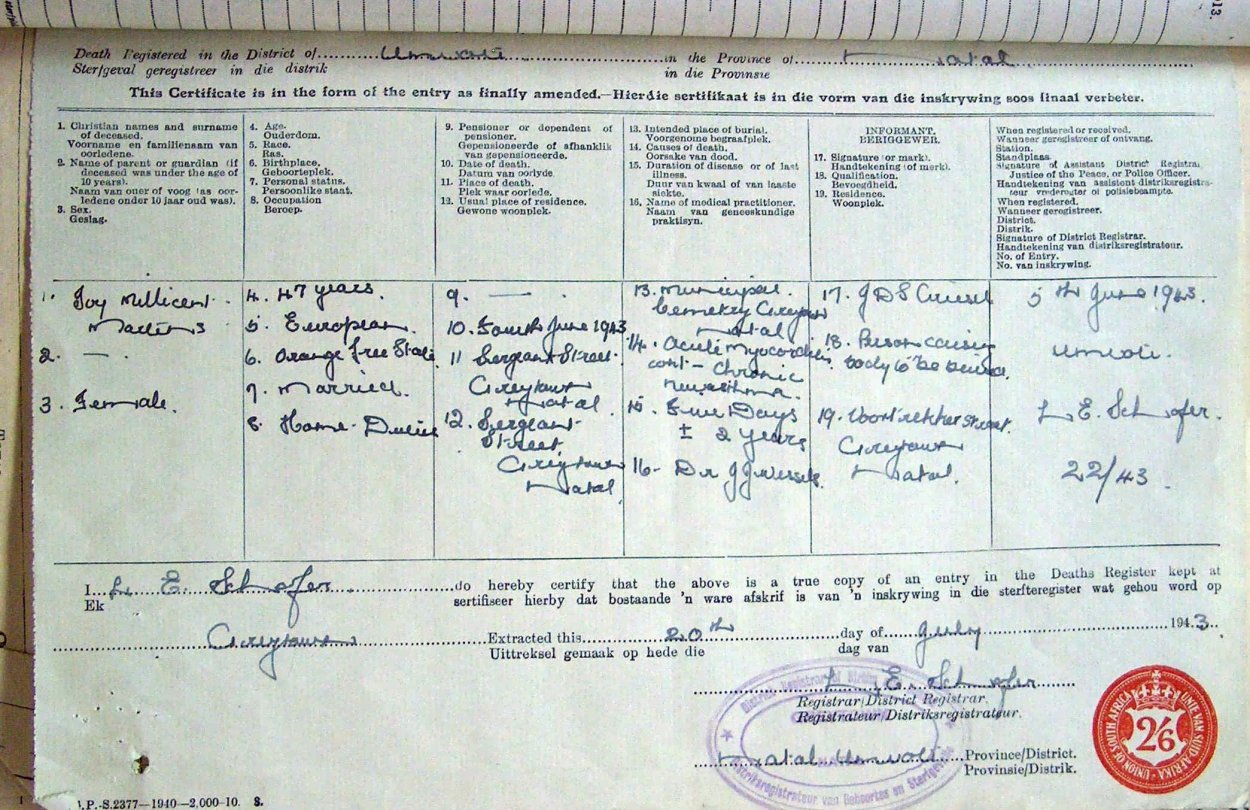 13.
Death Registered in the District of Umvoti in the Province of Natal
Sterfgeval geregistreer in die distrik in die Provinsie
This Certificate is in the form of the entry as finally amended.—Hierdie sertifikaat is in die vorm van die inskrywing soos finaal verbeter.
1. Christian names and surname
of deceased.
Voorname en familienaam van
oorledene.
2. Name of parent or guardian (if
deceased was under the age of
10 years).
Naam van ouer of voog (as oor-
ledene onder 10 jaar oud was).
3. Sex.
Geslag.
4. Age.
Ouderdom.
5. Race.
Ras.
6. Birthplace.
Geboorteplek.
7. Personal status.
Persoonlike staat.
8. Occupation
Beroep.
9. Pensioner or dependent of
pensioner.
Gepensioneerde of afhanklik
van gepensioneerde.
10. Date of death.
Datum van oorlyde.
11. Place of death.
Plek waar oorlede.
12. Usual place of residence.
Gewone woonplek.
13. Intended place of burial.
Voorgenome begraafplek.
14. Causes of death.
Oorsake van dood.
15. Duration of disease or of last
illness.
Duur van kwaal of van laaste
siekte.
16. Name of medical practitioner.
Naam van geneeskundige
praktisyn.
INFORMANT,
BERIGGEWER.
17. Signature (or mark).
Handtekening (of merk).
18. Qualification.
Bevoegdheid.
19. Residence.
Woonplek.
When registered or received.
Wanneer geregistreer of ontvang.
Station.
Standplaas.
Signature of Assistant District Registra
Justice of the Peace, or Police Officer.
Handtekening van assistent-distriksregistra-
teur vrederegter of polisiebeampte.
When registered.
Wanneer geregistreer.
District.
Distrik.
Signature of District Registrar.
Handtekening van distriksregistrateur.
No. of Entry.
No. van inskrywing.
1. Joy Millicent
2. —.
3. Female.
4. 47 years.
5. European.
6. Orange Free State
7. Married.
8. Home Duties
9. —
10. Fourth June 1943
11 Sergeant Street
Greytown
Natal
12. Sergeant
Street
Greytown
Natal
13. Municipal
Cemetery Greytown
Natal
14. Acute Myocarditis
Chronic
15. Five Days
± 2 years
16. Dr J J Wessels
17. J D S
18. Person causing
body to be buried.
19. Voortrekker Street
Greytown
Natal.
5th June 1943.
Umvoti.
L. E. Schafer.
22/43.
I L. E. Schafer do hereby certify that the above is a true copy of an entry in the Deaths Register kept at
Ek sertifiseer hierby dat bostaande 'n ware afskrif is van 'n inskrywing in die sterfteregister wat gehou word op
Greytown Extracted this 20th day of July 1943.
Uittreksel gemaak op hede die dag van
L. E. Schafer
Registrar/District Registrar.
Registrateur/Distriksregistrateur.
Natal Umvoti Province/District.
Provinsie/Distrik.
Distriksregistrateur van Geboortes en Sterfgevalle
UNION OF SOUTH AFRICA · UNIE VAN SUID AFRIKA
2/6
.P.-S.2377—1940—2,000-10. S.